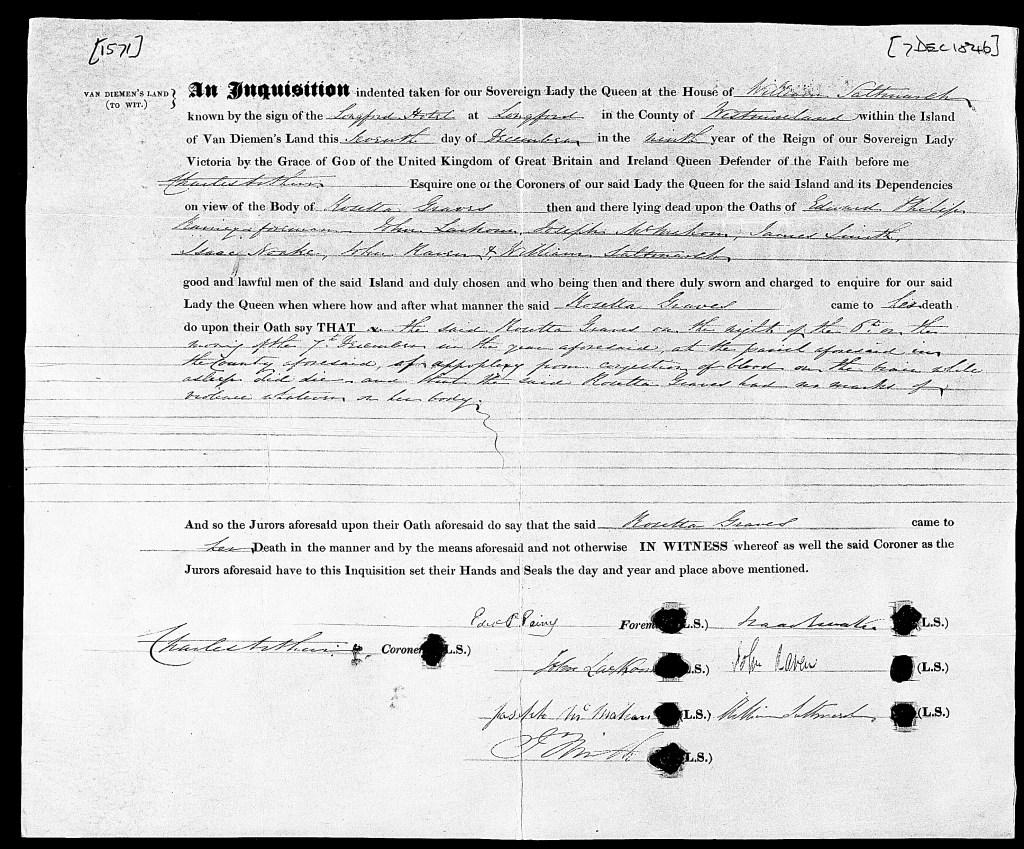 [1571]
[7 DEC 1846]
VAN DIEMEN'S LAND }
(TO WIT.)
An Inquisition indented taken for our Sovereign Lady the Queen at the House of William Saltmarsh
known by the sign of the Longford Hotel at Longford in the County of Westmorland within the Island
of Van Diemen's Land this Seventh day of December in the ninth year of the Reign of our Sovereign Lady
Victoria by the Grace of GOD of the United Kingdom of Great Britain and Ireland Queen Defender of the Faith before me
Charles Arthur Esquire one of the Coroners of our said Lady the Queen for the said Island and its Dependencies
on view of the Body of Rosetta Graves then and there lying dead upon the Oaths of Edward Philip
foreman John Joseph McMahon, James Smith,
Isaac Noake, John Raven & William Saltmarsh
good and lawful men of the said Island and duly chosen and who being then and there duly sworn and charged to enquire for our said
Lady the Queen when where how and after what manner the said Rosetta Graves came to her death
do upon their Oath say THAT the said Rosetta Graves on the night of the 6th or the
morng of the 7th December in the year aforesaid, at the parish aforesaid in
the County aforesaid, of appoplexy from congestion of blood on the brain while
asleep did die and that the said Rosetta Graves had no marks of
violence whatever on her body.
And so the Jurors aforesaid upon their Oath aforesaid do say that the said Rosetta Graves came to
her Death in the manner and by the means aforesaid and not otherwise IN WITNESS whereof as well the said Coroner as the
Jurors aforesaid have to this Inquisition set their Hands and Seals the day and year and place above mentioned.
Edwd P Forem L.S.) Isaac Noake (L.S.)
Charles Arthur Coroner L.S.)
John L.S.) John Raven (L.S.)
Joseph McMahon (L.S.) William Saltmarsh (L.S.)
Js Smith L.S.)